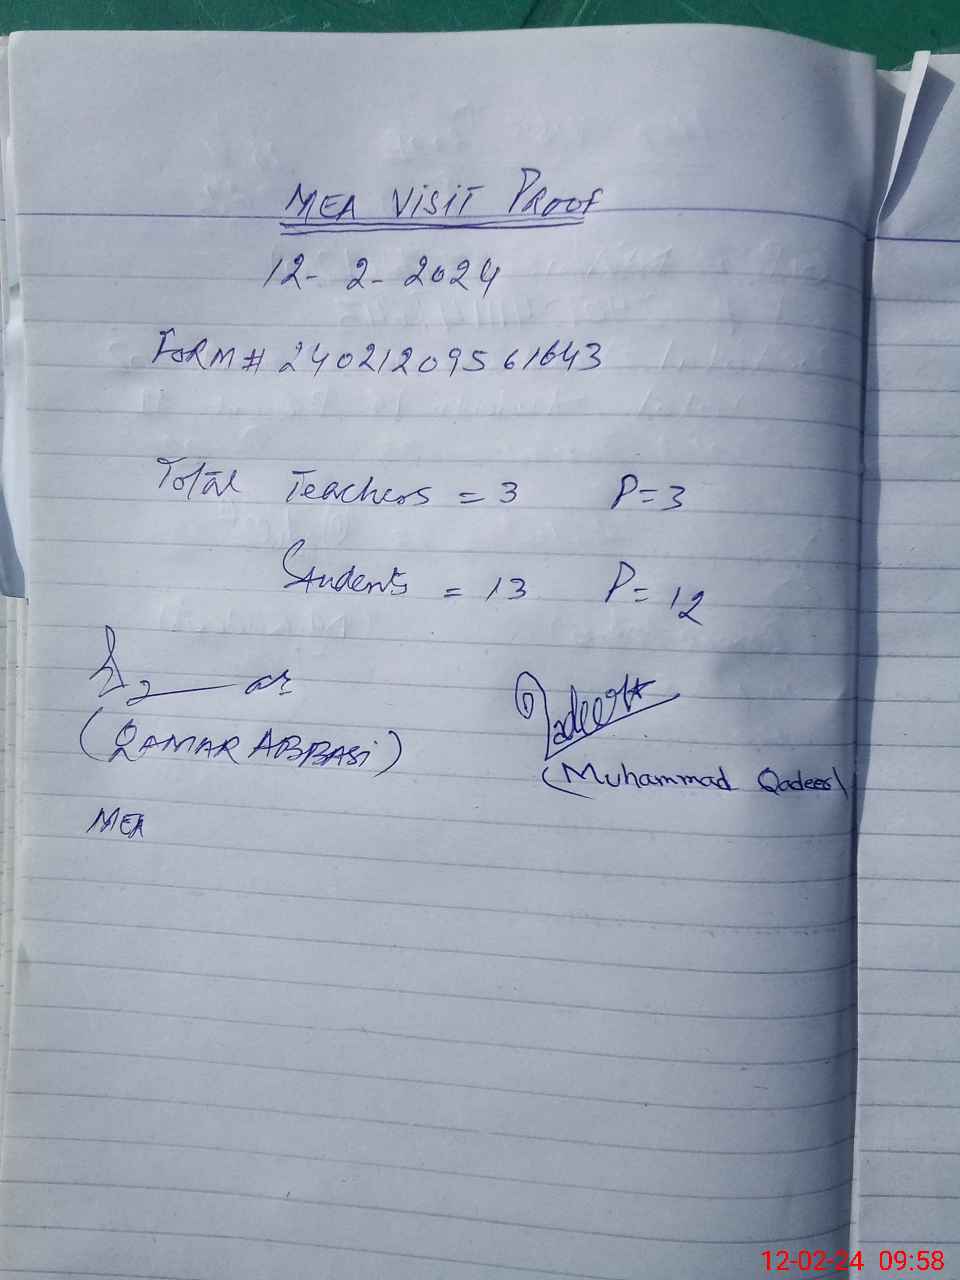 MEA VISIT PROOF
12-2-2024
FORM# 24021209561643
Total Teachers = 3 P=3
Students = 13 P=12
Qadeer
(QAMAR ABBASI)
(Muhammad Qadeer)
MEA
12-02-24 09:58